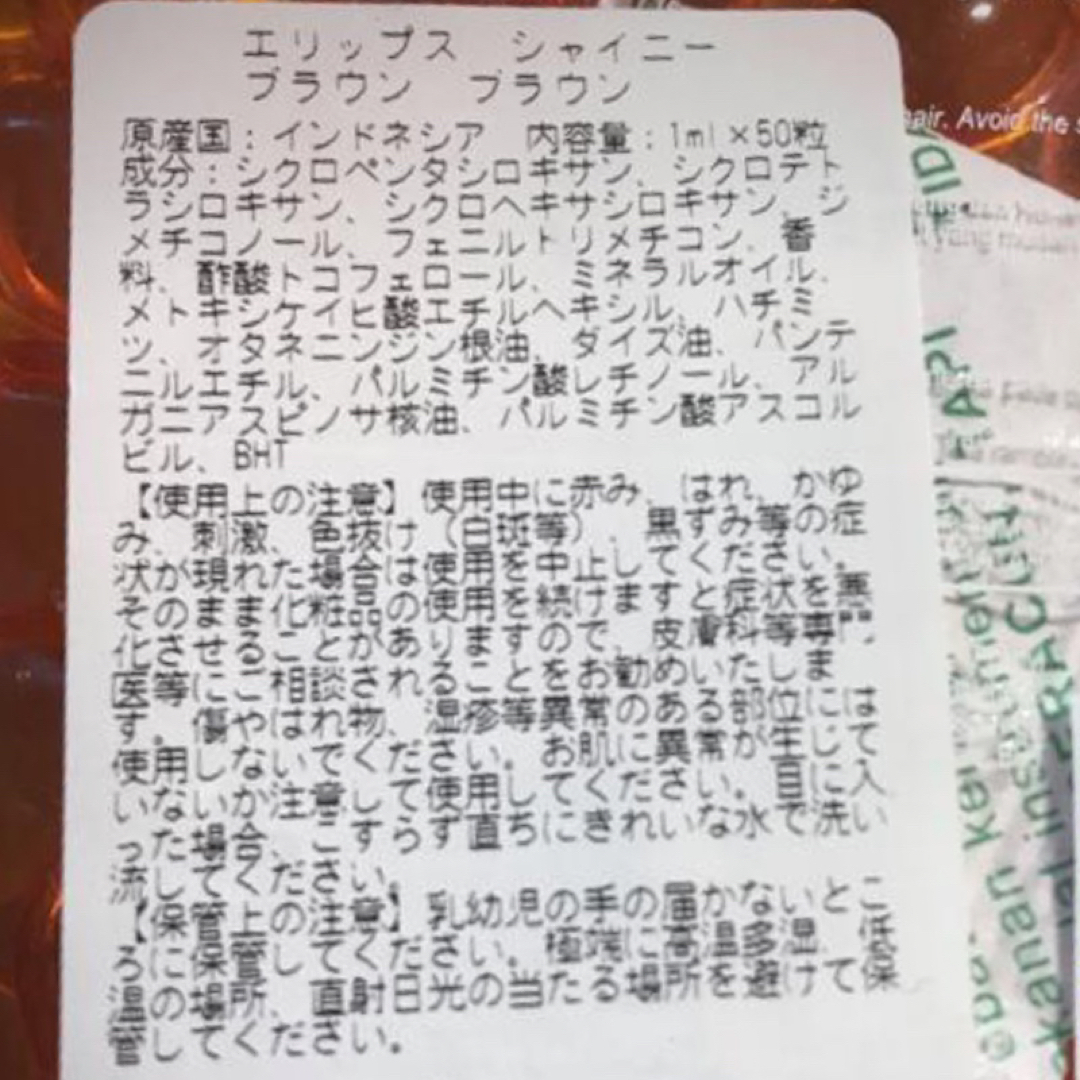 エリップス シャイニー
ブラウン ブラウン
原産国:インドネシア 内容量:1ml×50粒
成分:シクロペンタシロキサン、シクロテト
ラシロキサン、シクロヘキサシロキサン、ジ
メチコノール、フェニルトリメチコン、香
料、酢酸トコフェロール、ミネラルオイル、
メトキシケイヒ酸エチルヘキシル、ハチミ
ツ、オタネニンジン根油、ダイズ油、パンテ
ニルエチル、パルミチン酸レチノール、アル
ガニアスピノサ核油、パルミチン酸アスコル
ビル、BHT
【使用上の注意】使用中に赤み、はれ、かゆ
み、刺激、色抜け(白斑等)、黒ずみ等の症
状が現れた場合は使用を中止してください。
そのまま化粧品の使用を続けますと症状を悪
化させることがありますので、皮膚科等専門
医等にご相談されることをお勧めいたしま
す。傷やはれ物、湿疹等異常のある部位には
使用しないでください。お肌に異常が生じて
いないか注意して使用してください。目に入
った場合、こすらず直ちにきれいな水で洗い
流してください。
【保管上の注意】乳幼児の手の届かないとこ
ろに保管してください。極端に高温多湿、低
温の場所、直射日光の当たる場所を避けて保
管してください。
hair. Avoid the